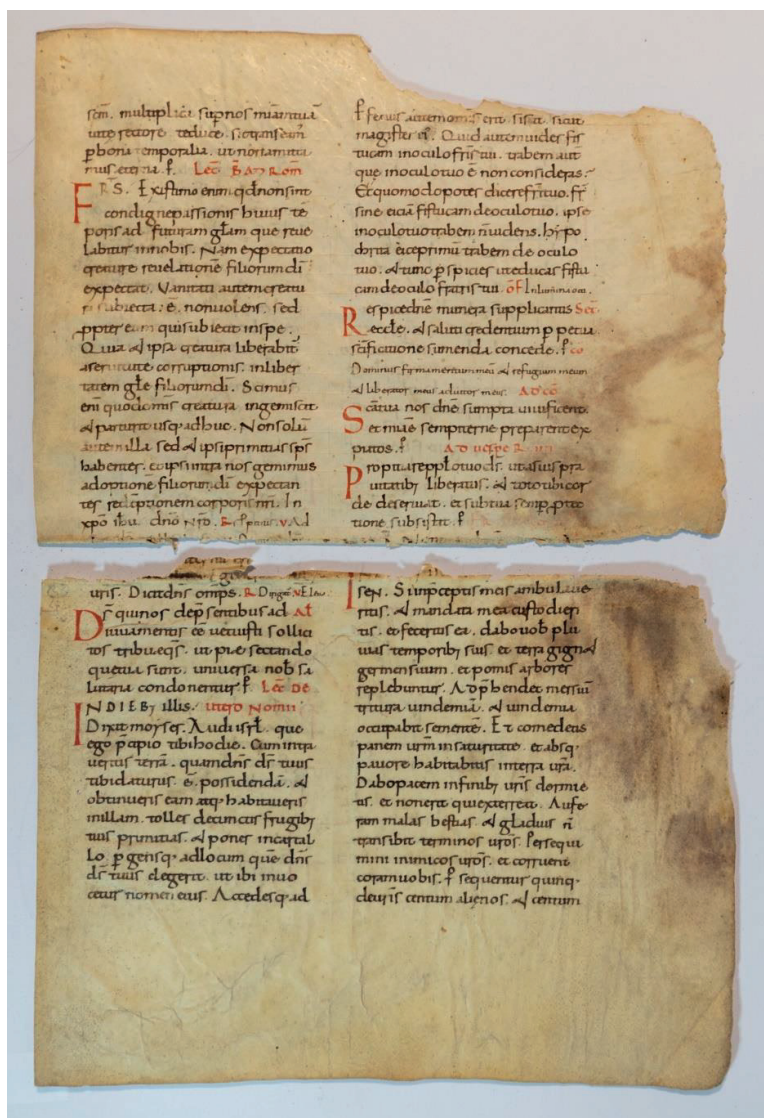 scm. multiplica sup nos miam tuā
ute rectore te duce. sic transeam
p bona temporalia. ut non amitta
mus eterna. ꝑ. Lec̄ b̄ Ap Rom
FRS. Existimo enim qd non sint
condigne passionis huius tē
poris ad futuram gl̄am que reue
labitur in nobis. Nam expectatio
creature reuelationē filiorum dī
expectat. Vanitati autem creatu
ra subiecta: ē. non uolens. sed
ppter eum qui subiecit in spe.
Quia & ipsa creatura liberabit̄
a seruitute corruptionis. in liber
tatem gl̄e filiorum dī. Scimus
eni quod om̄is creatura ingemiscit
& parturit usq; adhuc. Non solū
autem illa sed & ipsi primitias sp̄s
habentes. & ipsi intra nos gemimus
adoptione filiorum dī expectan
tes redēptionem corporis nr̄i. In
xpō ihū dn̄o nr̄o. R v Ad
ꝑ ferius autem om̄s erit si sit sicut
magister eī. Quid autem uides fis
tucam in oculo fr̄is tui. trabem aut̄
que in oculo tuo ē non consideras.
Et quomodo potes dicere fr̄i tuo. fr̄
sine eiciā fistucam de oculo tuo. ipse
in oculo tuo trabem n̄ uidens. hypo
chrita eice primū trabem de oculo
tuo. & tunc p spicies ut educas fistu
cam de oculo fratris tui. ōF Inlumina
Respice dn̄e munera supplicantis Sec̄
eccl̄e. & saluti credentium ppetua
sc̄ificatione sumenda concede. ꝑ co
Dominus firmamentum meū & refugium meum
& liberator meus adiutor meus. AD cō
Scā tua nos dn̄e sumpta uiuificent.
Et miae sempiterne preparent ex
piatos. ꝑ AD uespe
Propitiare ppl̄o tuo dī. ut a suis pra
uitatib; liberatus. & toto tibi cor
de deseruiat. et sub tua semp ptec
tione subsistat. ꝑ
uris. Dicit dn̄s omps. R Dirigat V Eleu
Dr̄ qui nos de psentibus ad Al̄
diuuamentis eē uetuisti sollici
tos tribue q̄s. ut pie sectando
que tua sunt. uniuersa nob̄ sa
lutaria condonentur ꝑ Lec̄ DE
IN DIEB; illis. utero Nomii
Dixit moyses. Audi isrl̄. que
ego p̄cipio tibi hodie. Cum intra
ueris terrā. quam dn̄s dī tuus
tibi daturus ē. possidendā. &
obtinueris eam atq; habitaueris
in illam. tolles de cunctis frugib;
tuis primitias. & pones in cartal
lo. pgensq; ad locum quē dn̄s
dī tuus elegerit. ut ibi inuo
cetur nomen eius. Accedesq; ad
ISEN. Si in p̄ceptis meis ambulaue
ritis. & mandata mea custodieri
tis. et feceritis ea. dabo uob̄ plu
uias temporib; suis. et terra gign&
germen suum. et pomis arbores
replebuntur. Adp̄hendet messiū
tritura uindemiā. & uindemia
occupabit sementē. Et comedetis
panem urm̄ in saturitate. et absq;
pauore habitabitis in terra urā.
Dabo pacem in finib; uris dormie
tis. et non erit qui exterreat. Aufe
ram malas bestias. & gladius n̄
transibit terminos uros. Persequi
mini inimicos uros. et corruent
coram uobis. ꝑsequentur quinq;
de uris centum alienos. & centum